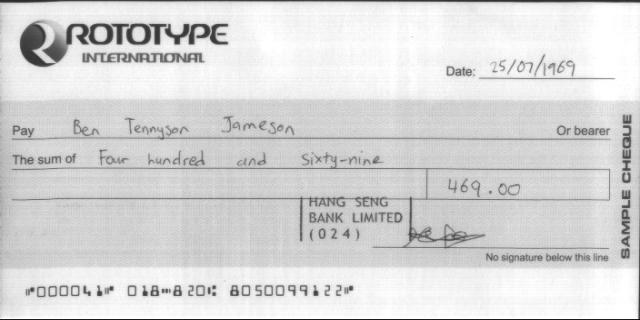 ROTOTYPE
INTERNATIONAL
Date: 25/07/1969
Pay Ben Tennyson Jameson Or bearer
The sum of Four hundred and sixty-nine
469.00
HANG SENG
BANK LIMITED
(024)
No signature below this line
SAMPLE CHEQUE
⑈000041⑈ 018⑉820⑆ 8050099122⑈